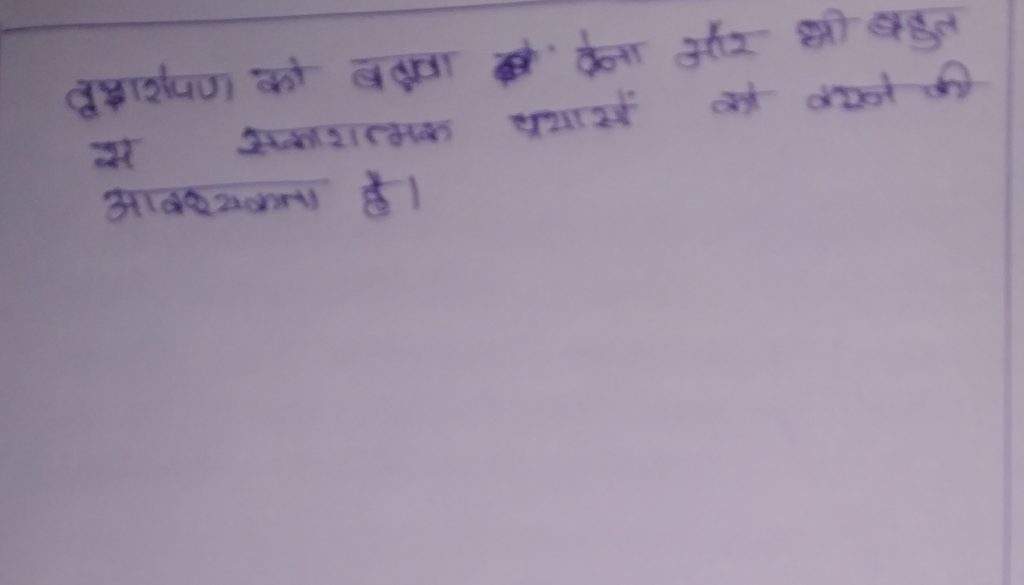 वृक्षारोपण को बढ़ावा देना और भी बहुत
से सकारात्मक प्रयासों को करने की
आवश्यकता है।